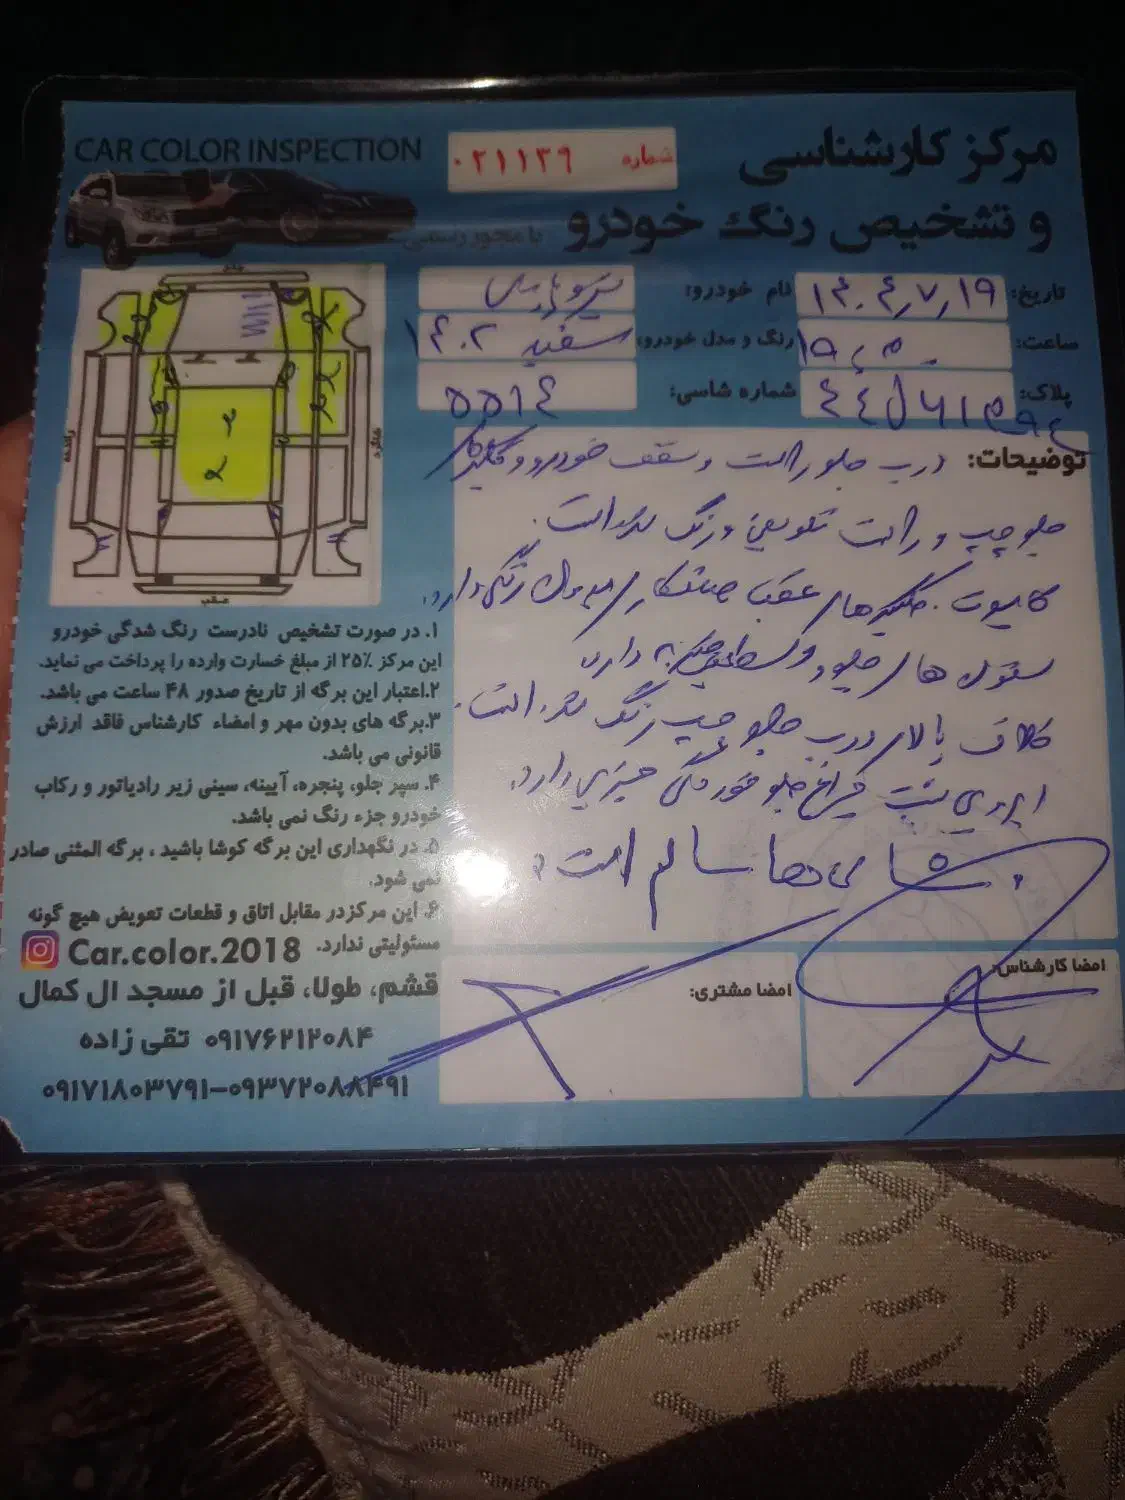 CAR COLOR INSPECTION
شماره ۰۲۱۱۳۹
مرکز کارشناسی
و تشخیص رنگ خودرو با مجوز رسمی
تاریخ: ۱۴۰۴,۷,۱۹
نام خودرو:
ساعت: ۱۹
رنگ و مدل خودرو: سفید ۱۴۰۲
پلاک:
شماره شاسی: ۵۵۱۴
جلو
راننده
شاگرد
عقب
توضیحات: درب جلو راست و سقف خودرو و گلگیر
جلو چپ و راست تعویض و رنگ شده است.
کاپوت. گلگیرهای عقب دارد.
ستون های جلو و وسط دارد
کلاف بالای درب جلو چپ رنگ شده است.
ابرویی پشت چراغ جلو خوردگی جزیی دارد.
شاسی ها سالم است.
امضا کارشناس:
امضا مشتری:
۱. در صورت تشخیص نادرست رنگ شدگی خودرو
این مرکز ۲۵٪ از مبلغ خسارت وارده را پرداخت می نماید.
۲.اعتبار این برگه از تاریخ صدور ۴۸ ساعت می باشد.
۳.برگه های بدون مهر و امضاء کارشناس فاقد ارزش
قانونی می باشد.
۴. سپر جلو، پنجره، آیینه، سینی زیر رادیاتور و رکاب
خودرو جزء رنگ نمی باشد.
۵. در نگهداری این برگه کوشا باشید ، برگه المثنی صادر
نمی شود.
۶. این مرکزدر مقابل اتاق و قطعات تعویض هیچ گونه
مسئولیتی ندارد.
Car.color.2018
قشم، طولا، قبل از مسجد ال کمال
۰۹۱۷۶۲۱۲۰۸۴ تقی زاده
۰۹۱۷۱۸۰۳۷۹۱-۰۹۳۷۲۰۸۸۴۹۱